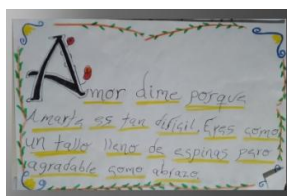 Amor dime porque
Amarte es tan difícil, Eres como
un tallo lleno de espinas pero
agradable como abrazo